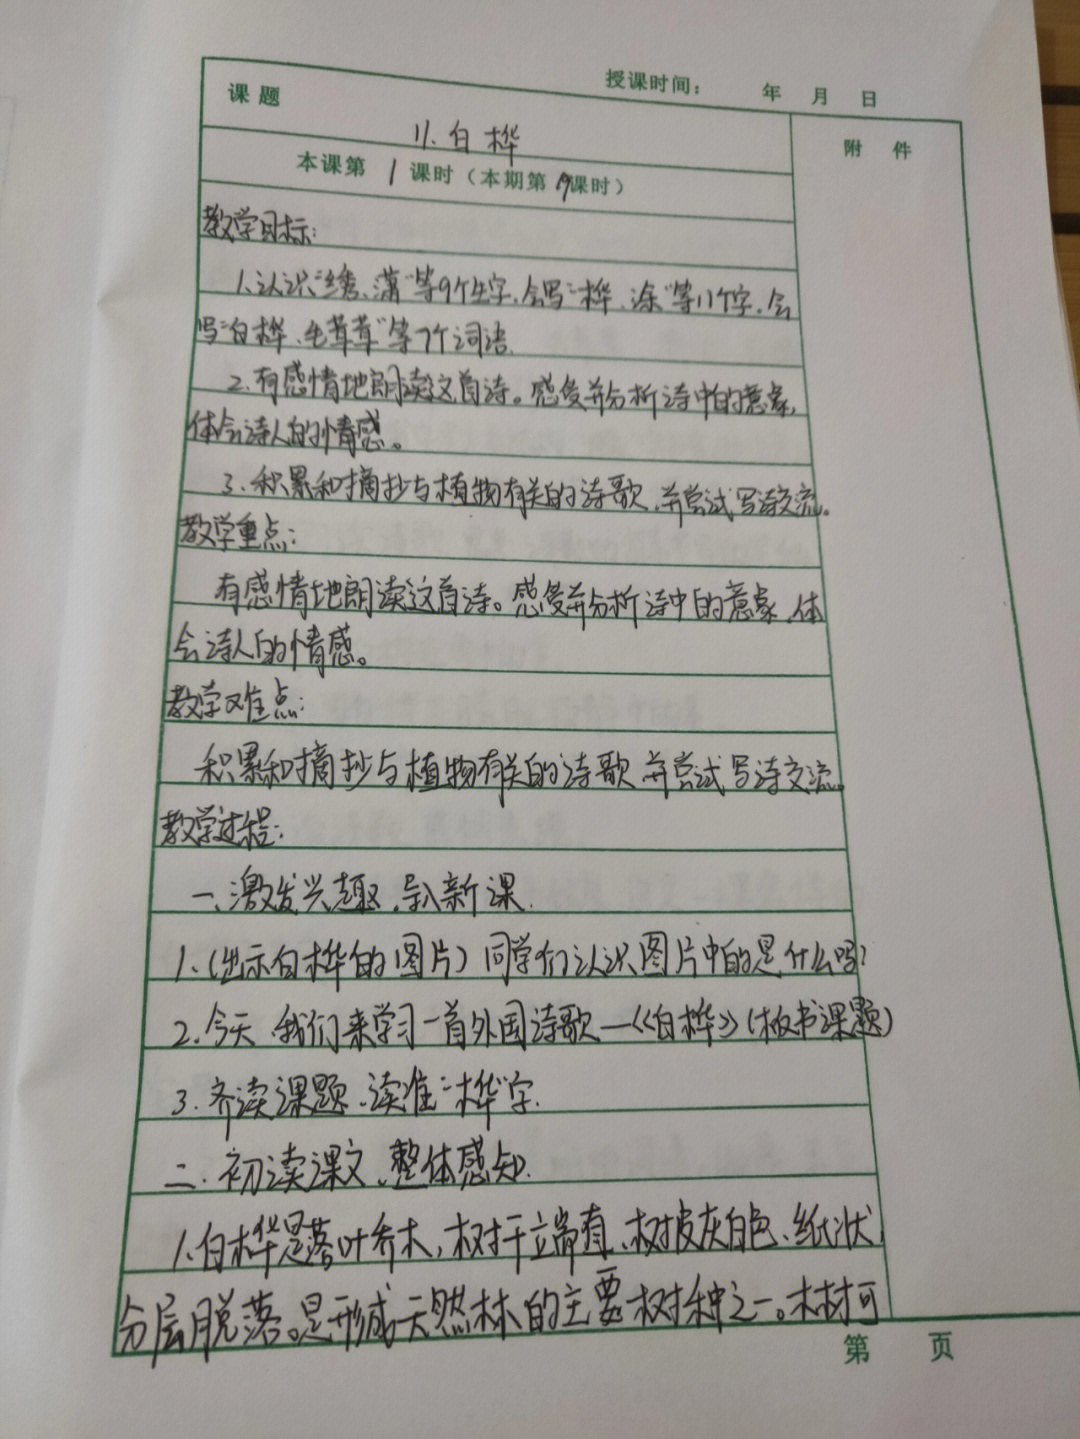 授课时间： 年 月 日
课题
附 件
11.白桦
本课第 1 课时（本期第19课时）
教学目标:
1.认识“绣、潇”等9个生字,会写“桦、涂”等11个字,会
写“白桦、毛茸茸”等7个词语.
2.有感情地朗读这首诗。感受并分析诗中的意象,
体会诗人的情感。
3.积累和摘抄与植物有关的诗歌,并尝试写诗交流。
教学重点:
有感情地朗读这首诗。感受并分析诗中的意象,体
会诗人的情感。
教学难点:
积累和摘抄与植物有关的诗歌,并尝试写诗交流。
教学过程:
一、激发兴趣,导入新课.
1.(出示白桦的图片)同学们认识图片中的是什么吗?
2.今天,我们来学习一首外国诗歌—《白桦》(板书课题)
3.齐读课题,读准“桦”字.
二.初读课文,整体感知.
1.白桦是落叶乔木,树干端直,树皮灰白色、纸状
分层脱落。是形成天然林的主要树种之一。木材可
第 页